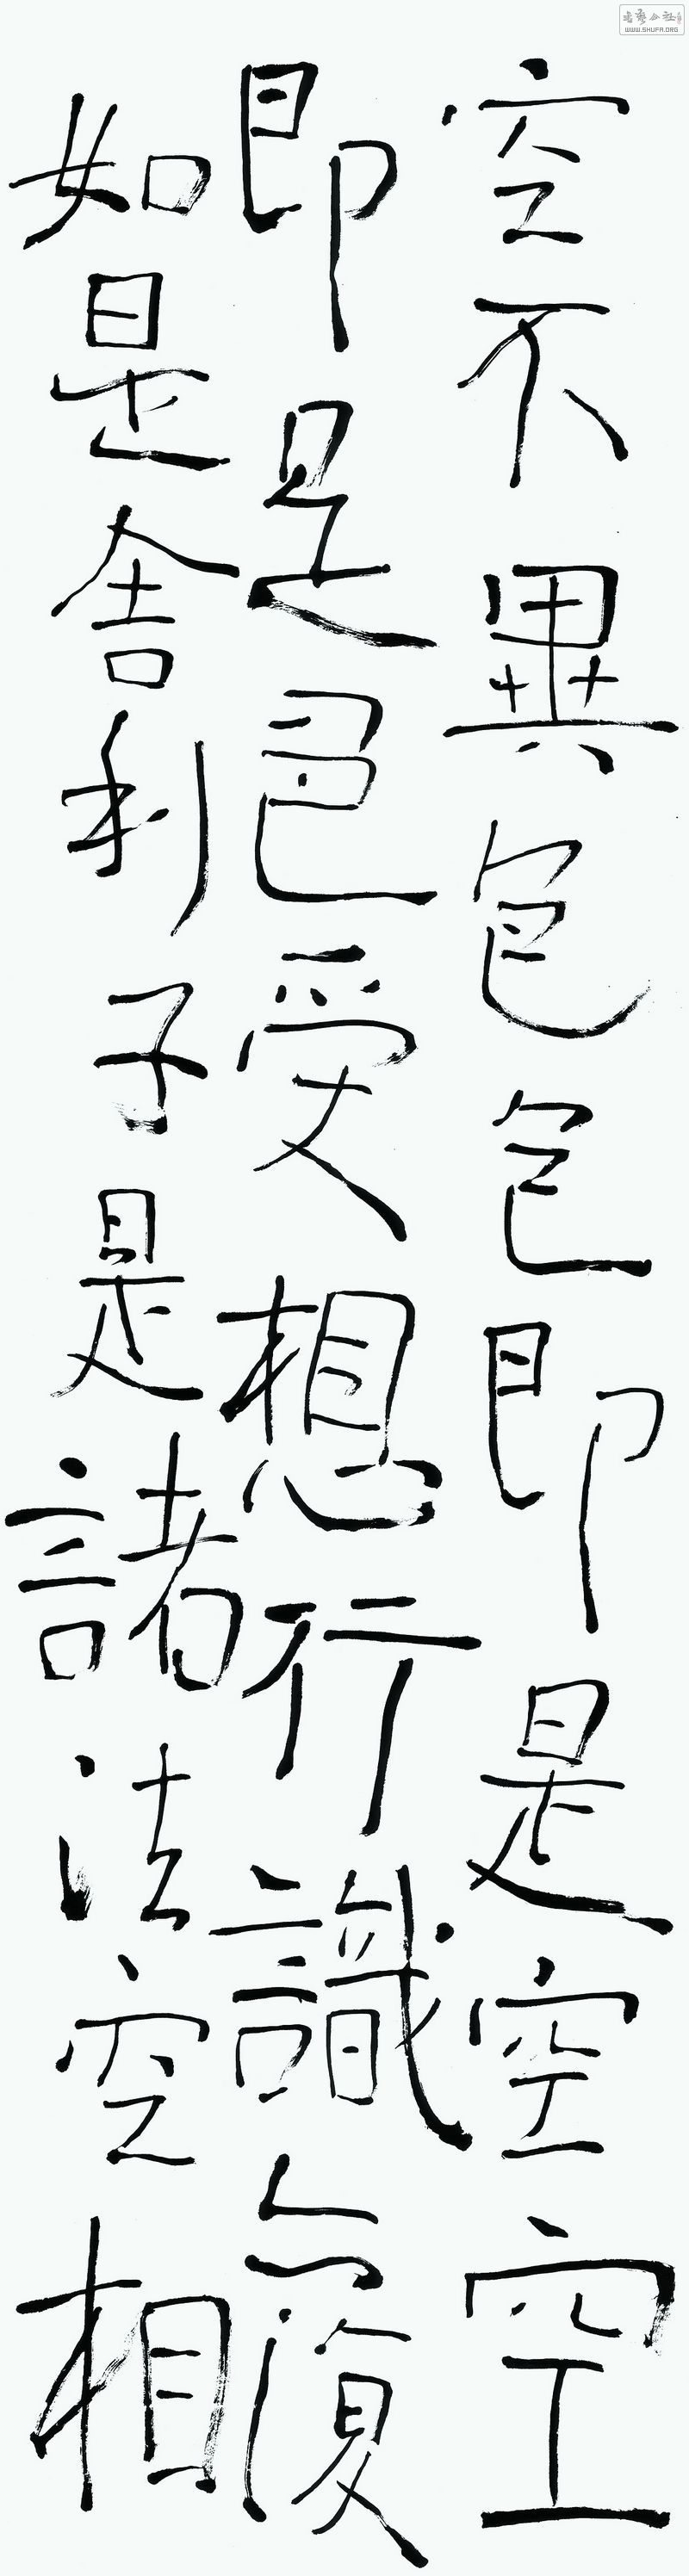 空不異色色即是空空
即是色受想行識亦復
如是舍利子是諸法空相
WWW.SHUFA.ORG